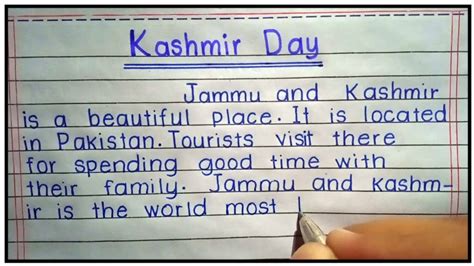 Kashmir Day
Jammu and Kashmir
is a beautiful place. It is located
in Pakistan. Tourists visit there
for spending good time with
their family. Jammu and Kashm-
ir is the world most